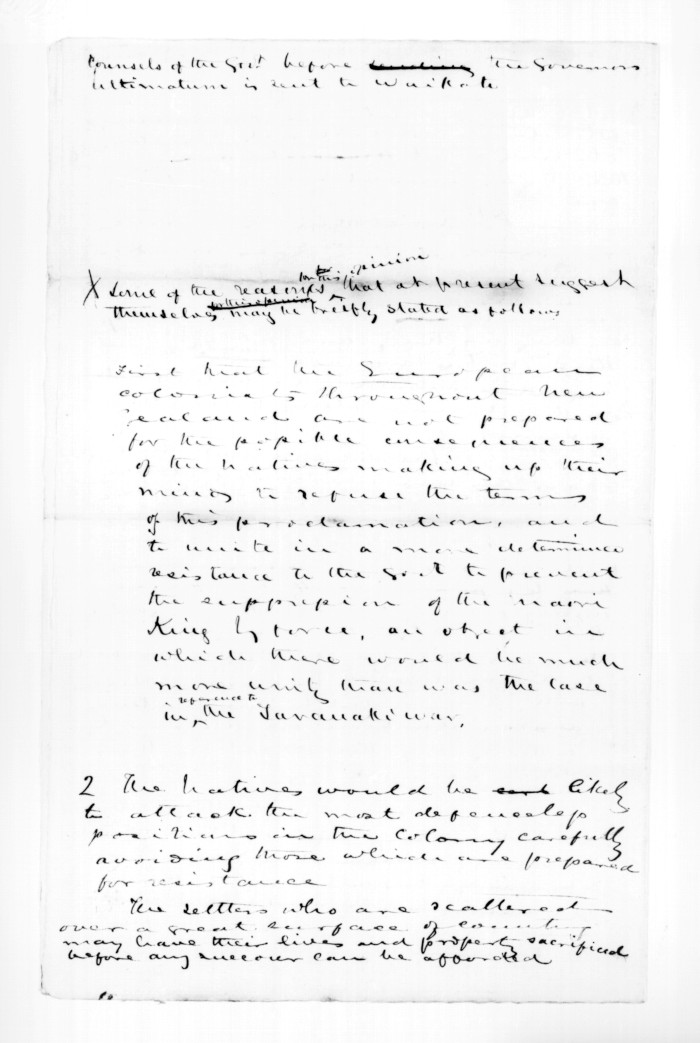 Counsels of the Govt before sending the Governors
Ultimatum is sent to Waikato
for this opinion
X Some of the reasons that at present suggest
for this opinion
themselves may be briefly stated as follows
First that the European
colonists throughout New
Zealand are not prepared
for the possible consequences
of the Natives making up their
minds to refuse the terms
of this proclamation, and
to unite in a more determined
resistance to the Govt to prevent
the suppression of the Maori
King by force, an object in
which there would be much
more unity than was the case
in reference to the Taranaki war.
2 The Natives would be likely
to attack the most defenceless
positions in the Colony carefully
avoiding those which are prepared
for resistance
The settlers who are scattered
over a great surface of country
may have their lives and property sacrificed
before any succour can be afforded